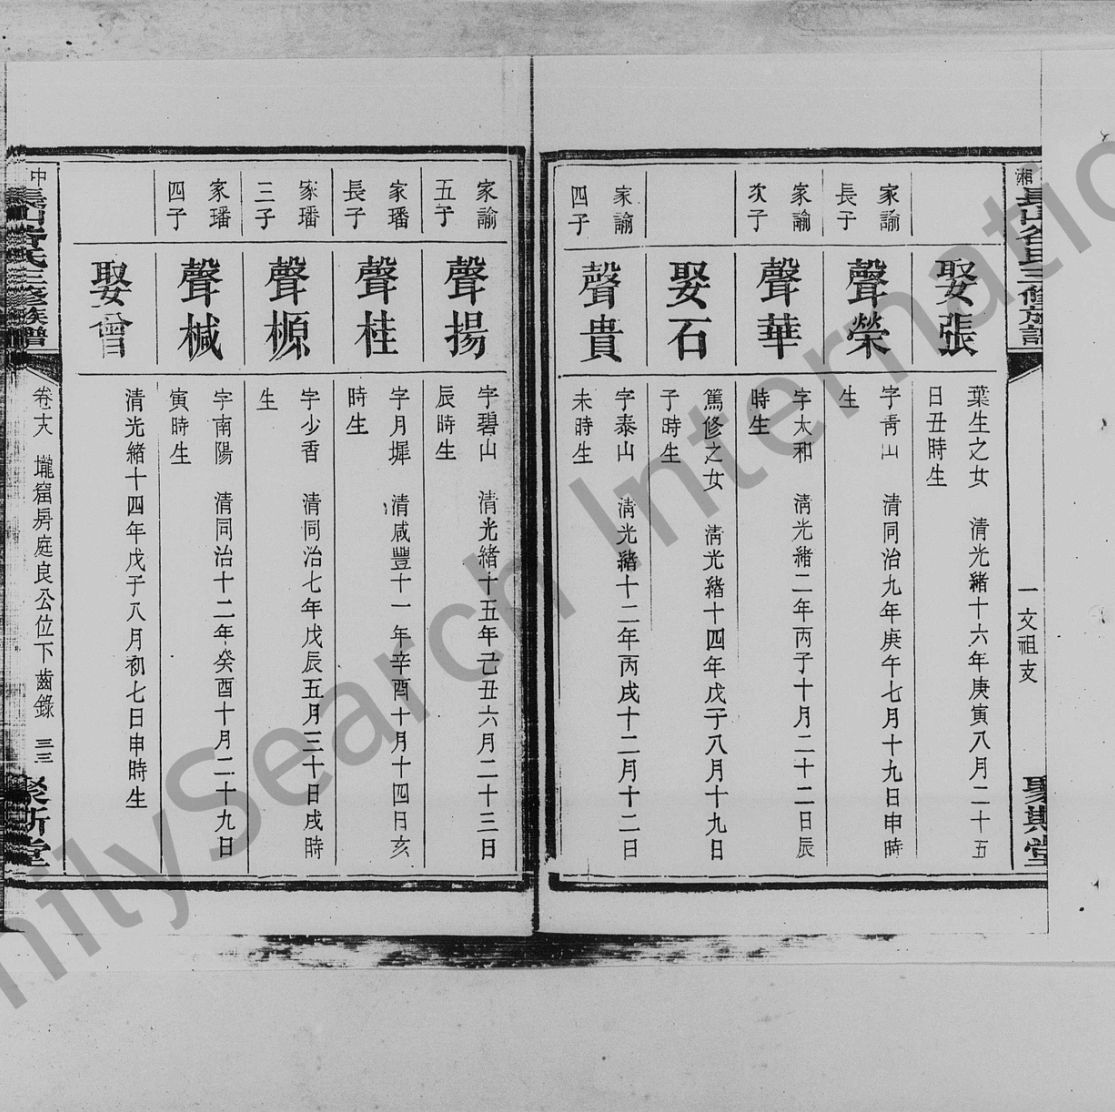 一文祖支
娶張
葉生之女 清光緒十六年庚寅八月二十五
日丑時生
家諭
長子
聲榮
字青山 清同治九年庚午七月十九日申時
生
家諭
次子
聲華
字太和 清光緒二年丙子十月二十二日辰
時生
娶石
篤修之女 清光緒十四年戊子八月十九日
子時生
家諭
四子
聲貴
字泰山 清光緒十二年丙戌十二月十二日
未時生
家諭
五子
聲揚
字碧山 清光緒十五年己丑六月二十三日
辰時生
家璠
長子
聲桂
字月墀 清咸豐十一年辛酉十月十四日亥
時生
家璠
三子
聲榞
字少香 清同治七年戊辰五月三十日戌時
生
家璠
四子
聲椷
字南陽 清同治十二年癸酉十月二十九日
寅時生
娶曾
清光緒十四年戊子八月初七日申時生
三修族譜
房庭良公位下齒錄 三三
FamilySearch International